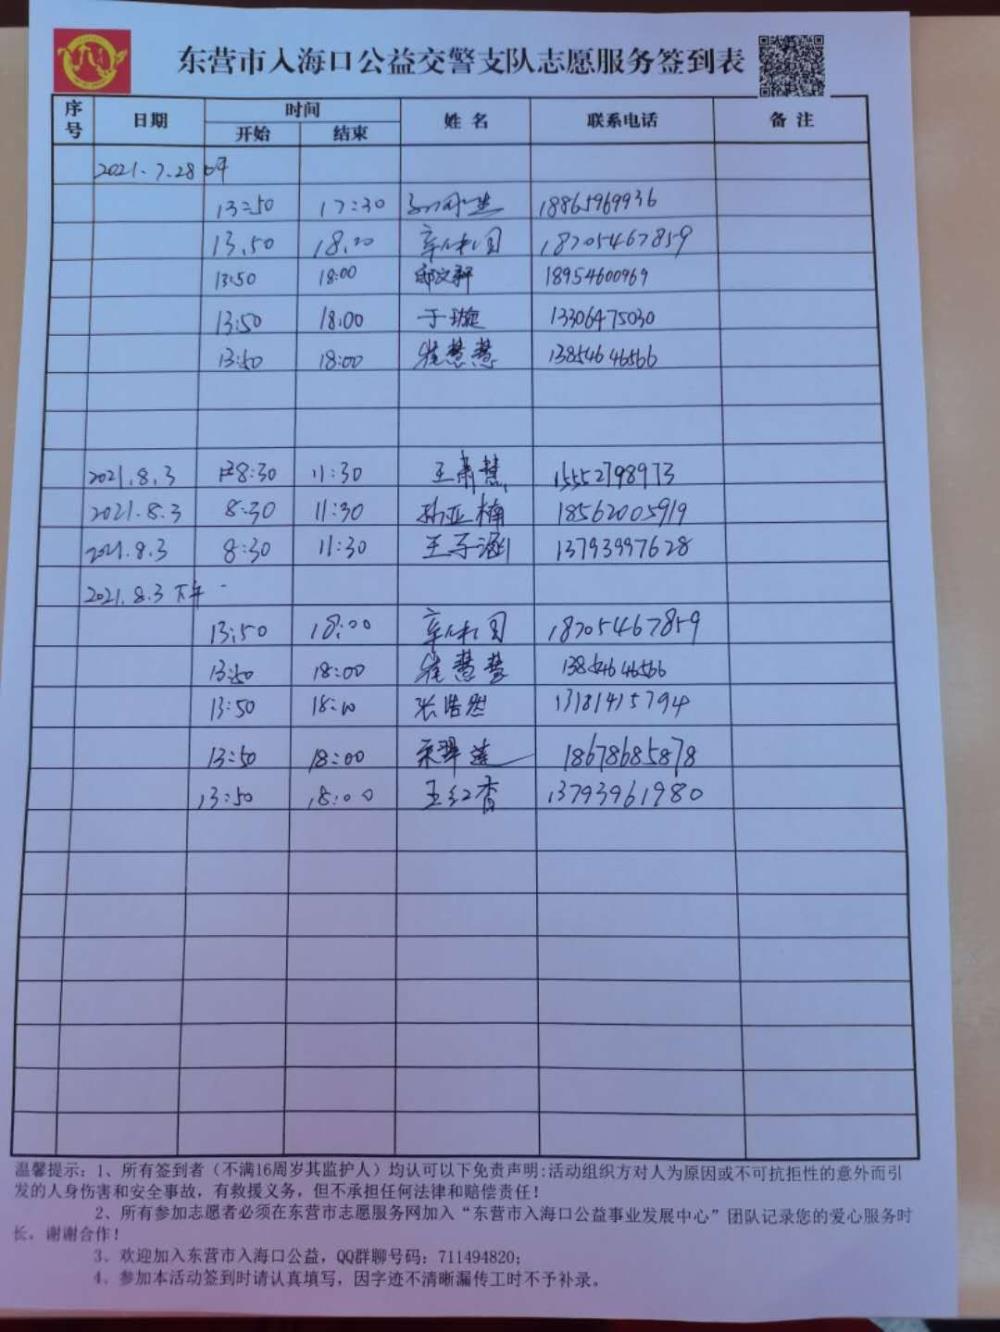 东营市入海口公益交警支队志愿服务签到表
序号 日期 时间 姓名 联系电话 备注
开始 结束
2021.7.28
13:50 17:30 18865969936
13.50 18.00 18705467859
13:50 18:00 18954600969
13:50 18:00 于璇 13306475030
13:50 18:00 崔慧慧 13854646566
2021.8.3 8:30 11:30 王肃慧 15552798973
2021.8.3 8:30 11:30 孙亚楠 18562005919
2021.8.3 8:30 11:30 王子涵 13793997628
2021.8.3 下午
13:50 18:00 18705467859
13:50 18:00 崔慧慧 13854646566
13:50 18:00 张浩然 13181415794
13:50 18:00 18678685878
13:50 18:00 王红香 13793961980
温馨提示：1、所有签到者（不满16周岁其监护人）均认可以下免责声明:活动组织方对人为原因或不可抗拒性的意外而引
发的人身伤害和安全事故，有救援义务，但不承担任何法律和赔偿责任！
2、所有参加志愿者必须在东营市志愿服务网加入“东营市入海口公益事业发展中心”团队记录您的爱心服务时
长。谢谢合作！
3、欢迎加入东营市入海口公益，QQ群聊号码：711494820；
4、参加本活动签到时请认真填写，因字迹不清晰漏传工时不予补录。